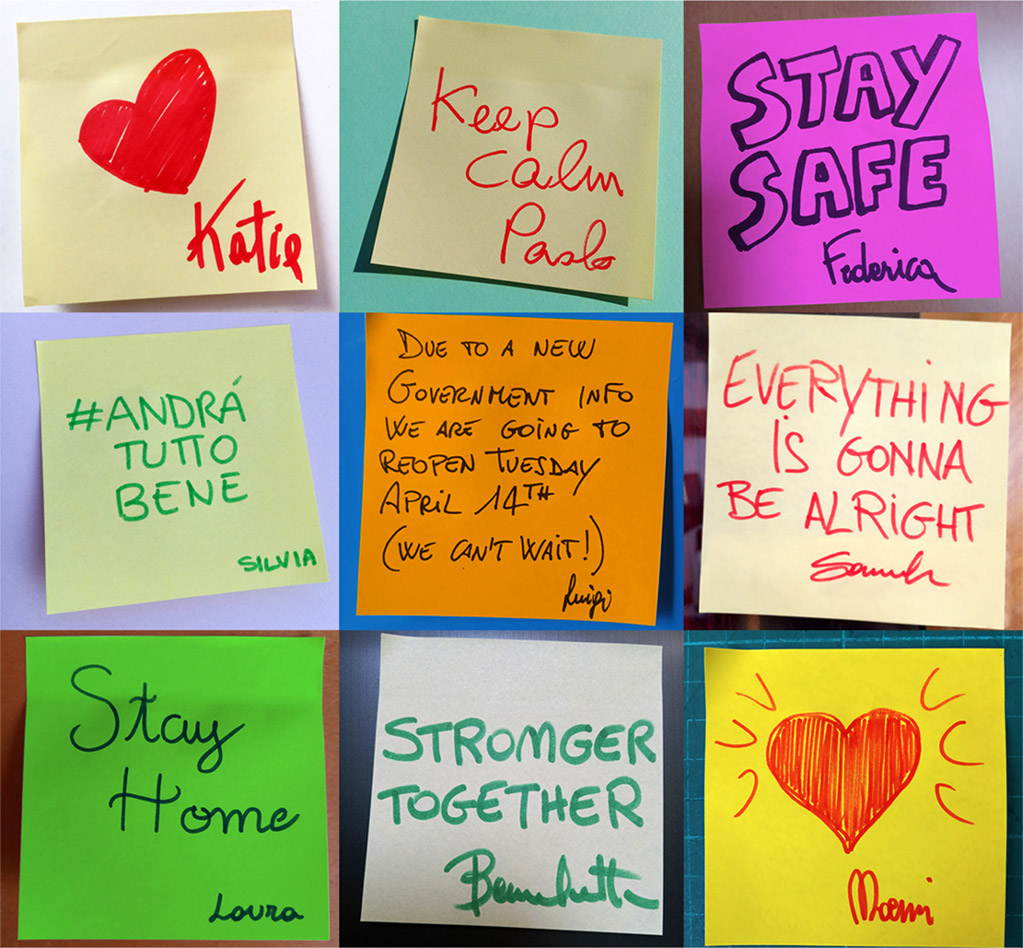 Katie
Keep
calm
Paolo
STAY
SAFE
Federica
#ANDRÁ
TUTTO
BENE
SILVIA
DUE TO A NEW
GOVERNMENT INFO
WE ARE GOING TO
REOPEN TUESDAY
APRIL 14TH
(WE CAN'T WAIT!)
Luigi
EVERYTHING
IS GONNA
BE ALRIGHT
Stay
Home
Laura
STROMGER
TOGETHER
Benedetta
Noemi